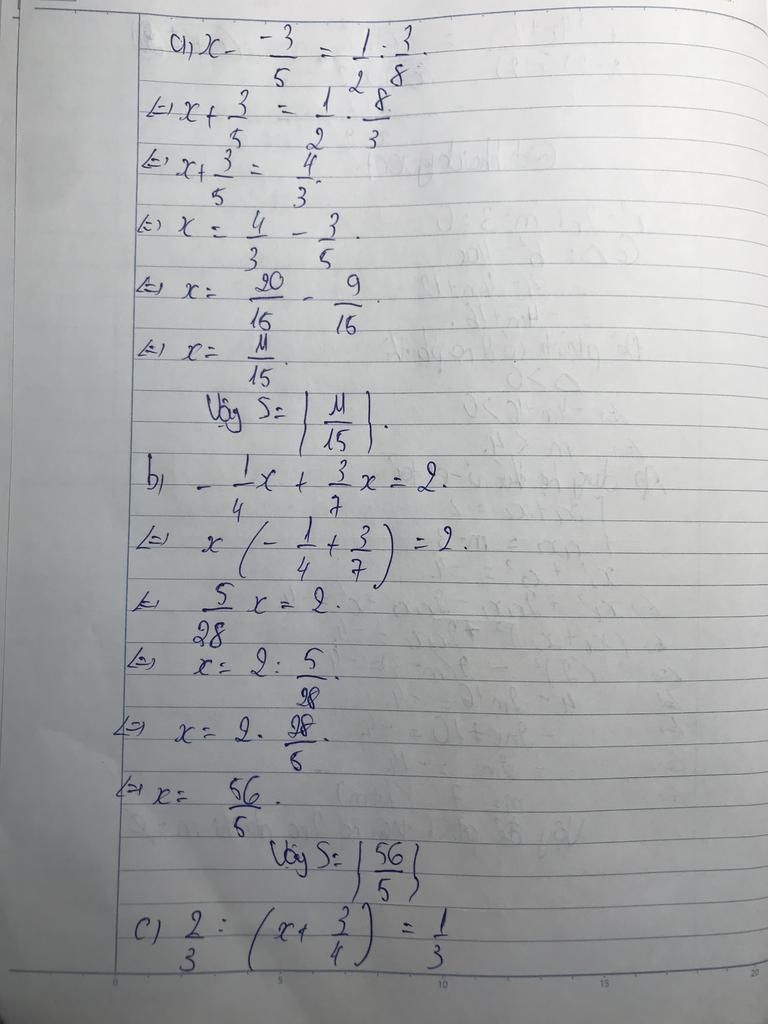 a, x - -3/5 = 1/2 : 3/8.
<=> x + 3/5 = 1/2 . 8/3
<=> x + 3/5 = 4/3.
<=> x = 4/3 - 3/5.
<=> x = 20/15 - 9/15.
<=> x = 11/15.
Vậy S = {11/15}.
b, - 1/4 x + 3/7 x = 2.
<=> x (- 1/4 + 3/7) = 2.
<=> 5/28 x = 2.
<=> x = 2 : 5/28.
<=> x = 2 . 28/5.
<=> x = 56/5.
Vậy S = {56/5}
c) 2/3 : (x + 3/4) = 1/3
0 5 10 15 20